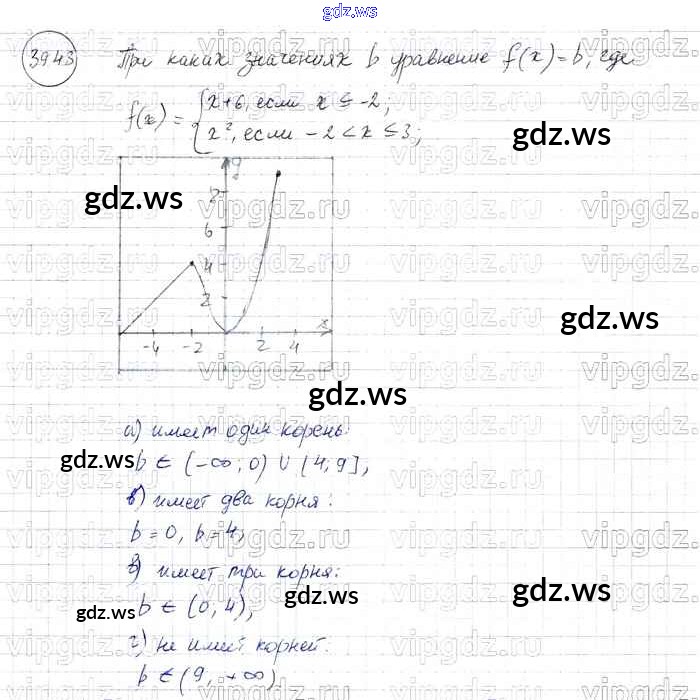 gdz.ws
3943 При каких значениях b уравнение f(x)=b, где
f(x) = { x+6, если x ≤ -2;
x², если -2 < x ≤ 3;
gdz.ws
y
gdz.ws
8
6
4
2
x
-4 -2 2 4
gdz.ws
gdz.ws
а) имеет один корень:
gdz.ws
b ∈ (-∞; 0) ∪ (4; 9],
б) имеет два корня:
b = 0, b = 4,
в) имеет три корня:
gdz.ws
gdz.ws
b ∈ (0, 4),
gdz.ws
г) не имеет корней:
b ∈ (9, +∞)
vipgdz.ru